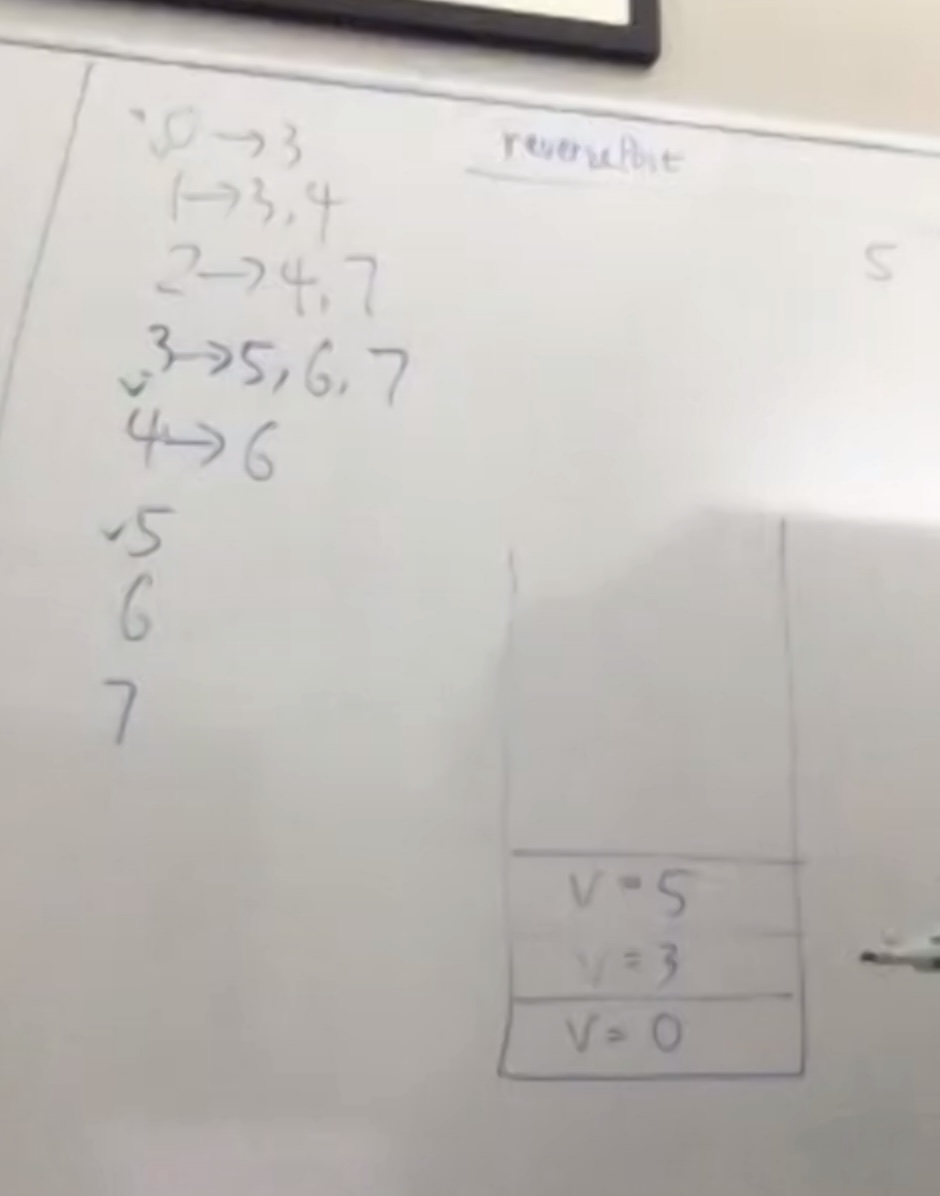 0→3
1→3,4
2→4,7
3→5,6,7
4→6
5
6
7
reversePost
5
V=5
V=3
V=0